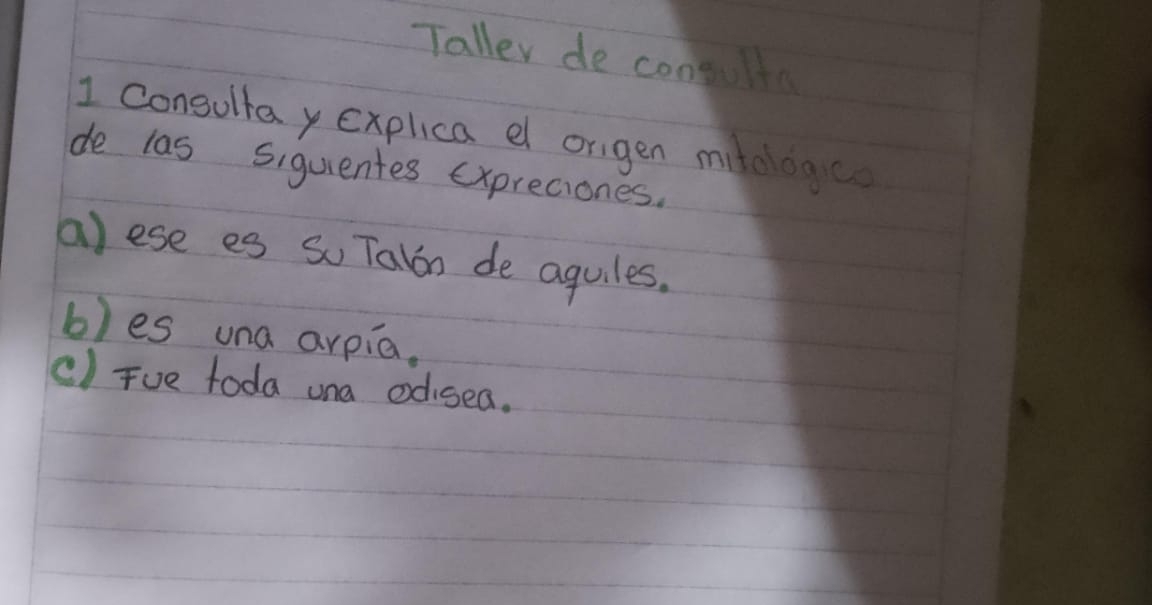 Taller de consulta
1 Consulta y explica el origen mitológico
de las siguientes expreciones.
a) ese es su Talón de aquiles.
b) es una arpía.
c) Fue toda una odisea.